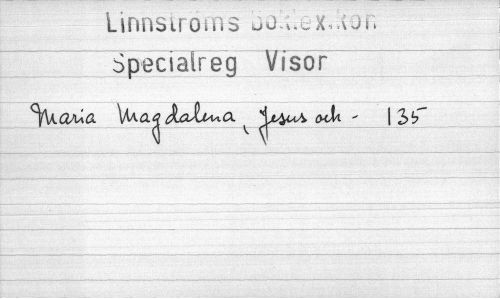 Linnströms boklexikon
Specialreg Visor
Maria Magdalena, Jesus och - 135